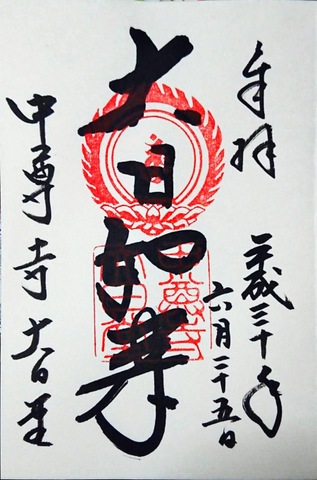 奉拝
平成三十年
六月二十五日
大日如来
中尊寺 大日堂